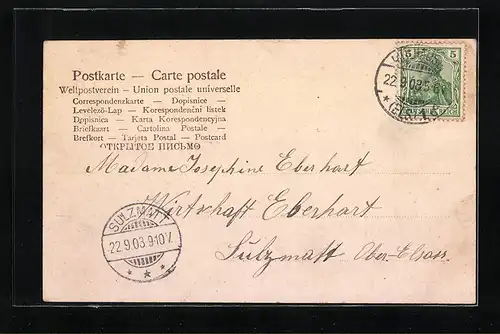 Postkarte — Carte postale
Weltpostverein — Union postale universelle
Correspondenzkarte — Dopisnice —
Levelező-Lap — Korespondenční lístek
Dopisnica — Karta Korespondencyjna
Briefkaart — Cartolina Postale —
Brefkort — Tarjeta Postal — Postcard
ОТКРЫТОЕ ПИСЬМО
5 5
22.9.03.5-6
(ELSASS)
Madame Josephine Eberhart
Wirtschaft Eberhart
Sulzmatt Ober-Elsass.
SULZMATT
22.9.03.9-10V.